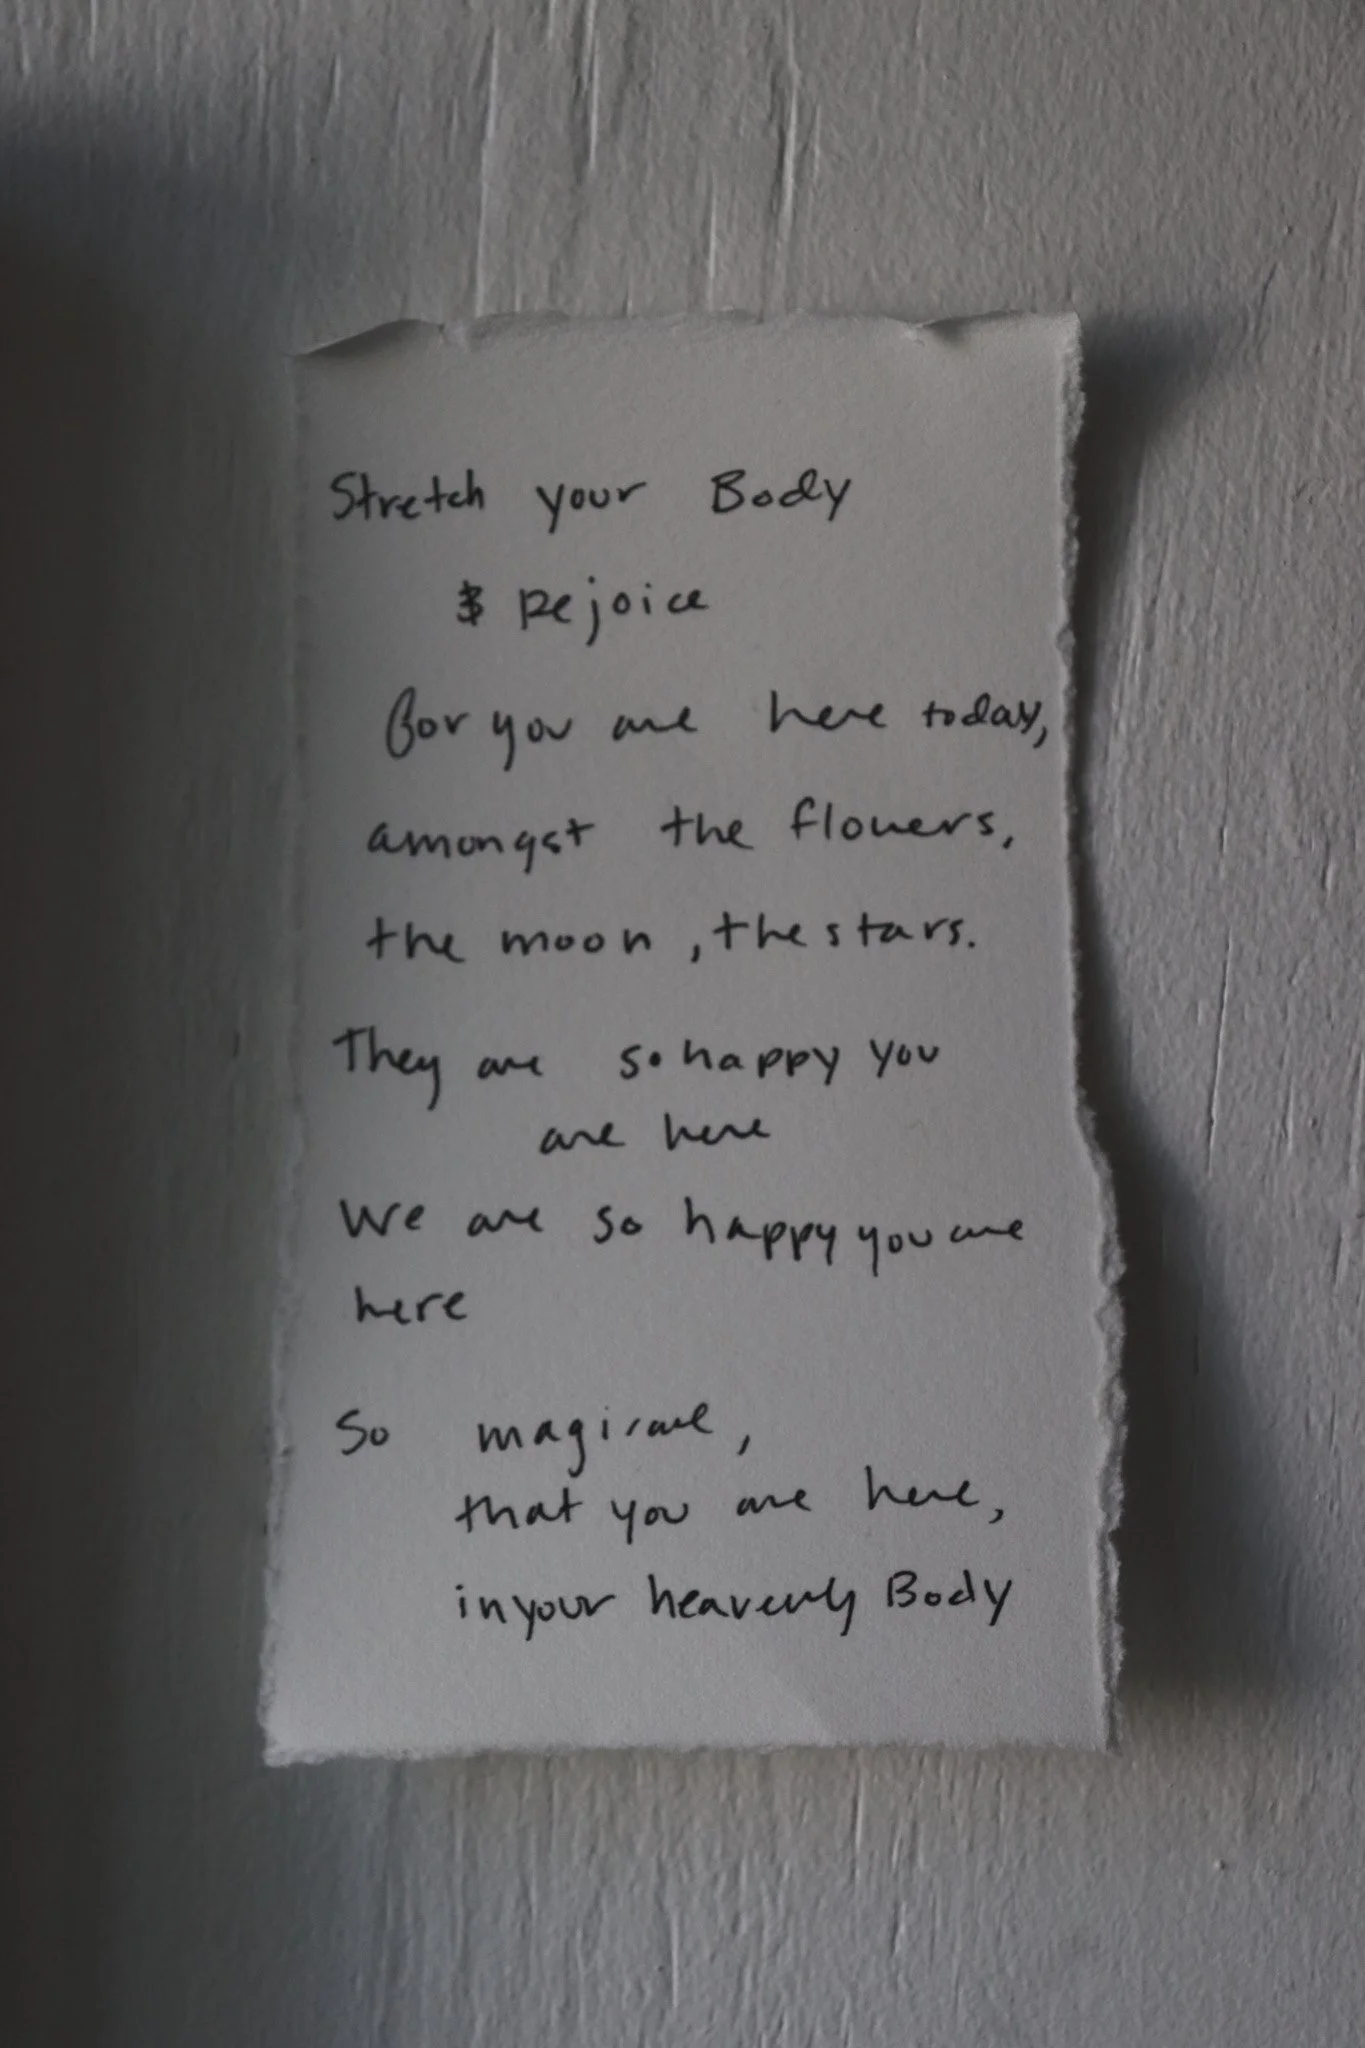 Stretch your Body
& Rejoice
For you are here today,
amongst the flowers,
the moon, the stars.
They are so happy you
are here
We are so happy you are
here
So magical,
that you are here,
in your heavenly Body